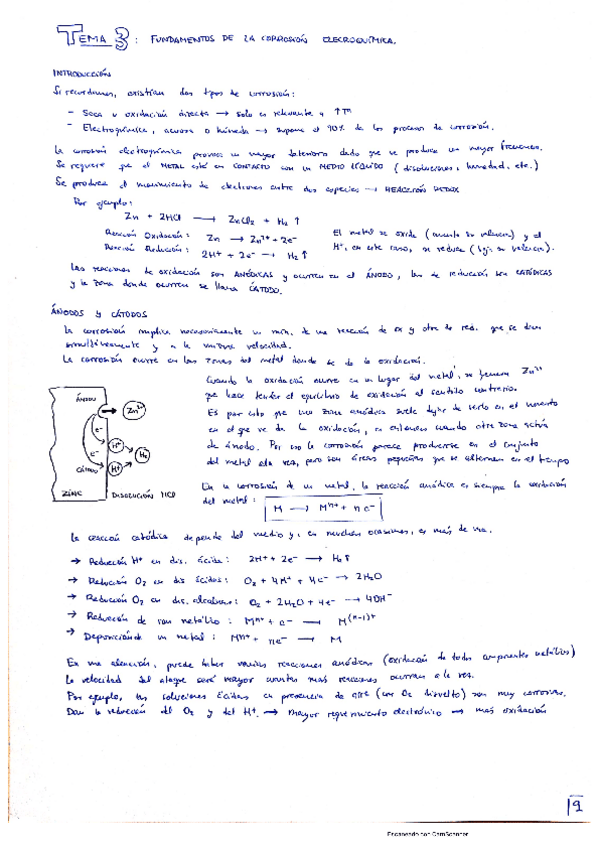 TEMA 3 : FUNDAMENTOS DE LA CORROSIÓN ELECROQUÍMICA.
INTRODUCCIÓN
Si recordamos, existían dos tipos de corrosión:
- Seca u oxidación directa → Solo es relevante a ↑Tª
- Electroquímica, acuosa o húmeda → supone el 90% de los procesos de corrosión.
La corrosión electroquímica provoca un mayor deterioro dado que se produce con mayor frecuencia.
Se requiere que el METAL esté en CONTACTO con un MEDIO LÍQUIDO (disoluciones, humedad, etc.)
Se produce el movimiento de electrones entre dos especies → REACCIÓN REDOX
Por ejemplo:
Zn + 2HCl → ZnCl2 + H2 ↑
Reacción Oxidación: Zn → Zn2+ + 2e-
Reacción Reducción: 2H+ + 2e- → H2 ↑
El metal se oxida (aumenta su valencia) y el
H+, en este caso, se reduce (baja su valencia).
Las reacciones de oxidación son ANÓDICAS y ocurren en el ÁNODO, las de reducción son CATÓDICAS
y la zona donde ocurren se llama CÁTODO.
ÁNODOS Y CÁTODOS
La corrosión implica necesariamente un mín. de una reacción de ox y otra de red. que se dan
simultáneamente y a la misma velocidad.
La corrosión ocurre en las zonas del metal donde se da la oxidación.
Cuando la oxidación ocurre en un lugar del metal, se generan Zn2+
que hace tender el equilibrio de oxidación al sentido contrario.
Es por esto que una zona anódica suele dejar de serlo en el momento
en el que se da la oxidación, es entonces cuando otra zona actúa
de ánodo. Por eso la corrosión parece producirse en el conjunto
del metal a la vez, pero son áreas pequeñas que se alternan en el tiempo
ÁNODO
Zn2+
e-
H+
H2
e-
H+
CÁTODO
ZINC
DISOLUCIÓN HCl
En la corrosión de un metal, la reacción anódica es siempre la oxidación
del metal: M → Mn+ + ne-
La reacción catódica depende del medio y, en muchas ocasiones, es más de una.
→ Reducción H+ en dis. ácida: 2H+ + 2e- → H2↑
→ Reducción O2 en dis ácidas: O2 + 4H+ + 4e- → 2H2O
→ Reducción O2 en dis. alcalinas: O2 + 2H2O + 4e- → 4OH-
→ Reducción de ion metálico: Mn+ + e- → M(n-1)+
→ Deposición de un metal: Mn+ + ne- → M
En una aleación, puede haber varias reacciones anódicas (oxidación de todos componentes metálicos)
La velocidad del ataque será mayor cuantas más reacciones ocurran a la vez.
Por ejemplo, las soluciones ácidas en presencia de aire (con O2 disuelto) son muy corrosivas.
Dan la reducción del O2 y del H+. → Mayor requerimiento electrónico → más oxidación
19
Escaneado con CamScanner